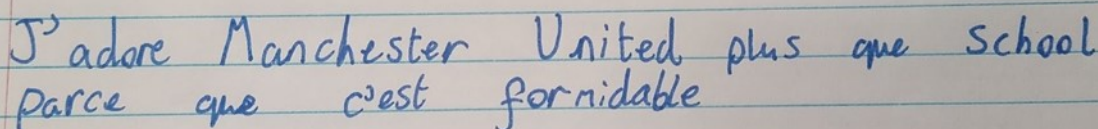 J'adore Manchester United plus que School
parce que c'est formidable